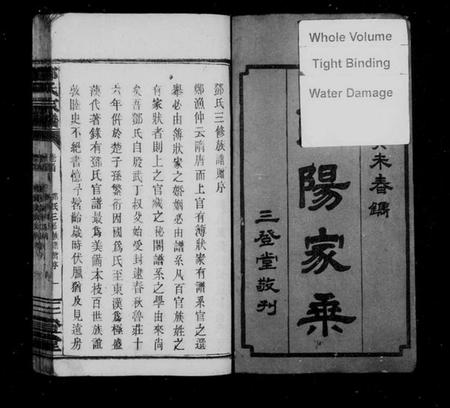 Whole Volume
Tight Binding
Water Damage
未春鐫
陽家乘
三登堂敬刊
鄧氏三修族譜序
鄭漁仲云隋唐而上官有簿狀家有譜系官之選
舉必由簿狀家之婚姻必由譜系凡百官族姓之
有家狀者則上之官藏之秘閣譜系之學由來尚
矣吾鄧氏自殷武丁叔父始受封逮春秋魯莊十
六年併於楚子孫繁衍因國為氏至東漢為極盛
漢代著錄有鄧氏官譜最為美備本枝百世族誼
敦睦史不絕書憶予髫齡歲時伏臘猶及見遠房